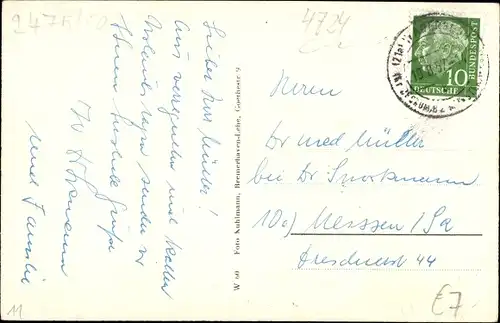 247K
4724
Lieber Herr Müller!
Aus vergnügten und kalten
Urlaubstagen senden wir
Ihnen herzliche Grüße
Ihr H.
und Familie
W 60 Foto Kuhlmann, Bremerhaven-Lehe, Goethestr. 9
DEUTSCHE BUNDESPOST
10
Herrn
Dr med Müller
bei Dr
10a) Meissen / Sa
Dresdnerst 44
11
€7